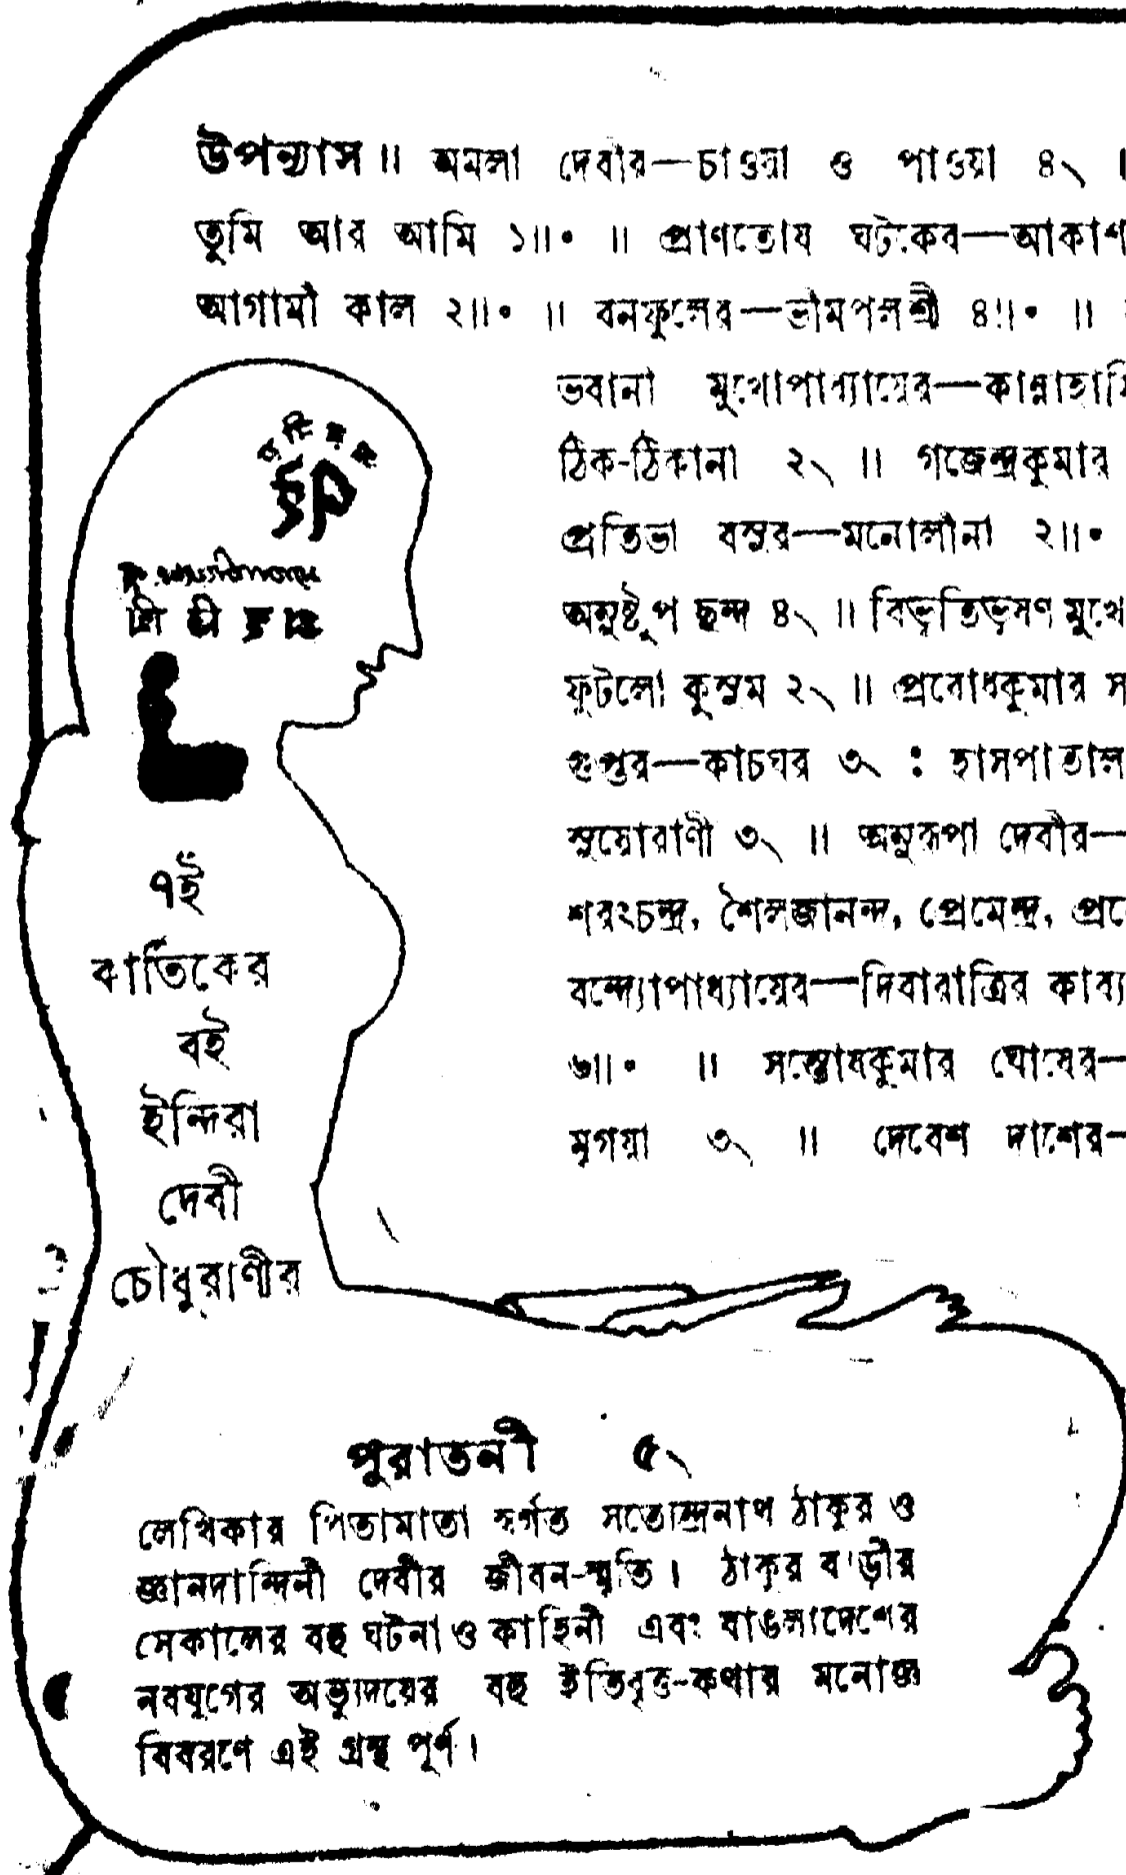 উপন্যাস ॥ অমলা দেবীর—চাওয়া ও পাওয়া ৪৲ ।
তুমি আর আমি ১॥০ ॥ প্রাণতোষ ঘটকের—আকাশ
আগামী কাল ২॥০ ॥ বনফুলের—ভীমপলশ্রী ৪॥০ ॥
ভবানী মুখোপাধ্যায়ের—কান্নাহাসি
ঠিক-ঠিকানা ২৲ ॥ গজেন্দ্রকুমার
প্রতিভা বসুর—মনোলীনা ২॥০
অনুষ্টুপ ছন্দ ৪৲ ॥ বিভূতিভূষণ মুখো
ফুটলো কুসুম ২৲ ॥ প্রবোধকুমার স
গুপ্তর—কাচঘর ৩৲ : হাসপাতাল
সুয়োরাণী ৩৲ ॥ অনুরূপা দেবীর—
শরৎচন্দ্র, শৈলজানন্দ, প্রেমেন্দ্র, প্রবো
বন্দ্যোপাধ্যায়ের—দিবারাত্রির কাব্য
৬॥০ ॥ সন্তোষকুমার ঘোষের—
মৃগয়া ৩৲ ॥ দেবেশ দাশের—
৭ই
কার্তিকের
বই
ইন্দিরা
দেবী
চৌধুরাণীর
পুরাতনী ৫৲
লেখিকার পিতামাতা স্বর্গত সত্যেন্দ্রনাথ ঠাকুর ও
জ্ঞানদানন্দিনী দেবীর জীবন-স্মৃতি। ঠাকুর বাড়ীর
সেকালের বহু ঘটনা ও কাহিনী এবং বাঙলাদেশের
নবযুগের অভ্যুদয়ের বহু ইতিবৃত্ত-কথার মনোজ্ঞ
বিবরণে এই গ্রন্থ পূর্ণ।